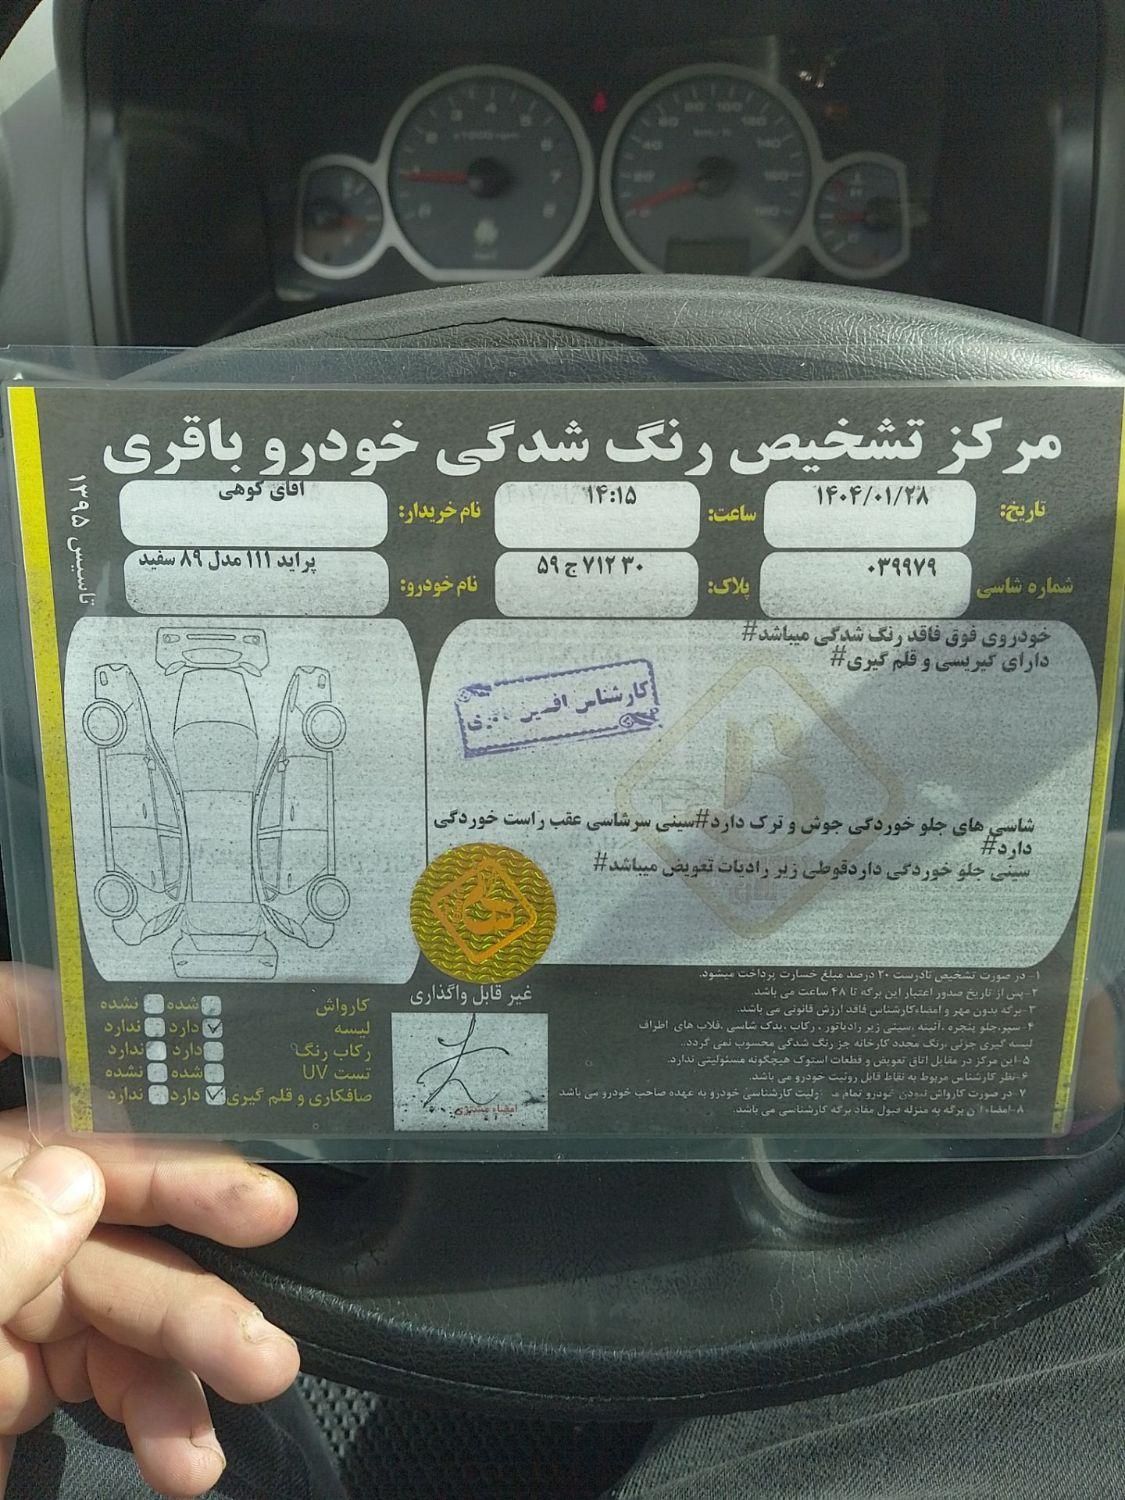 مرکز تشخیص رنگ شدگی خودرو باقری
تاسیس ۱۳۹۵
تاریخ: ۱۴۰۴/۰۱/۲۸ ساعت: ۱۴:۱۵ نام خریدار: آقای کوهی
شماره شاسی ۰۳۹۹۷۹ پلاک: ۳۰ ۷۱۲ ج ۵۹ نام خودرو: پراید ۱۱۱ مدل ۸۹ سفید
خودروی فوق فاقد رنگ شدگی میباشد#
دارای گیریسی و قلم گیری#
کارشناس
شاسی های جلو خوردگی جوش و ترک دارد#سینی سرشاسی عقب راست خوردگی
دارد#
سینی جلو خوردگی داردقوطی زیر رادیات تعویض میباشد#
غیر قابل واگذاری
کارواش شده نشده
لیسه دارد ندارد
رکاب رنگ دارد ندارد
تست UV شده نشده
صافکاری و قلم گیری دارد ندارد
امضاء مشتری
۱- در صورت تشخیص نادرست ۲۰ درصد مبلغ خسارت پرداخت میشود.
۲-پس از تاریخ صدور اعتبار این برگه تا ۴۸ ساعت می باشد.
۳-برگه بدون مهر و امضاءکارشناس فاقد ارزش قانونی می باشد.
۴- سپر،جلو پنجره ،آئینه ،سینی زیر رادیاتور ، رکاب ،یدک شاسی ،قلاب های اطراف
لیسه گیری جزئی ،رنگ مجدد کارخانه جز رنگ شدگی محسوب نمی گردد.
۵-این مرکز در مقابل اتاق تعویض و قطعات استوک هیچگونه مسئولیتی ندارد.
۶-نظر کارشناس مربوط به نقاط قابل روئیت خودرو می باشد.
۷- در صورت کارواش نبودن خودرو تمام کارشناسی خودرو به عهده صاحب خودرو می باشد
۸-امضاء برگه به منزله قبول مفاد برگه کارشناسی می باشد.